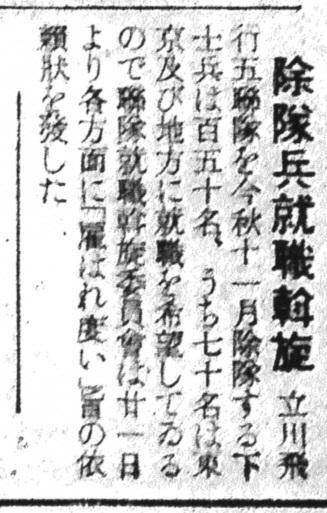 除隊兵就職斡旋 立川飛
行五聯隊を今秋十一月除隊する下
士兵は百五十名、うち七十名は東
京及び地方に就職を希望してゐる
ので聯隊就職斡旋委員會は廿一日
より各方面に「雇はれ度い」旨の依
賴狀を發した